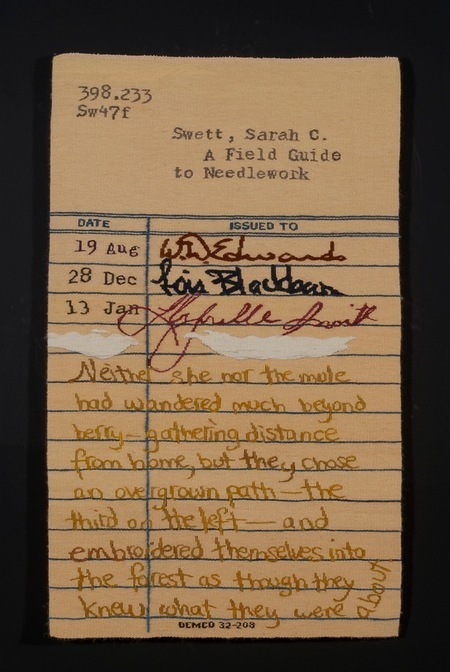 398.233
Sw47f
Swett, Sarah C.
A Field Guide
to Needlework
DATE ISSUED TO
19 Aug W.W. Edwards
28 Dec Lois Blackburn
13 Jan Smith
Neither she nor the mule
had wandered much beyond
berry-gathering distance
from home, but they chose
an overgrown path — the
third on the left — and
embroidered themselves into
the forest as though they
knew what they were about
DEMCO 32-208